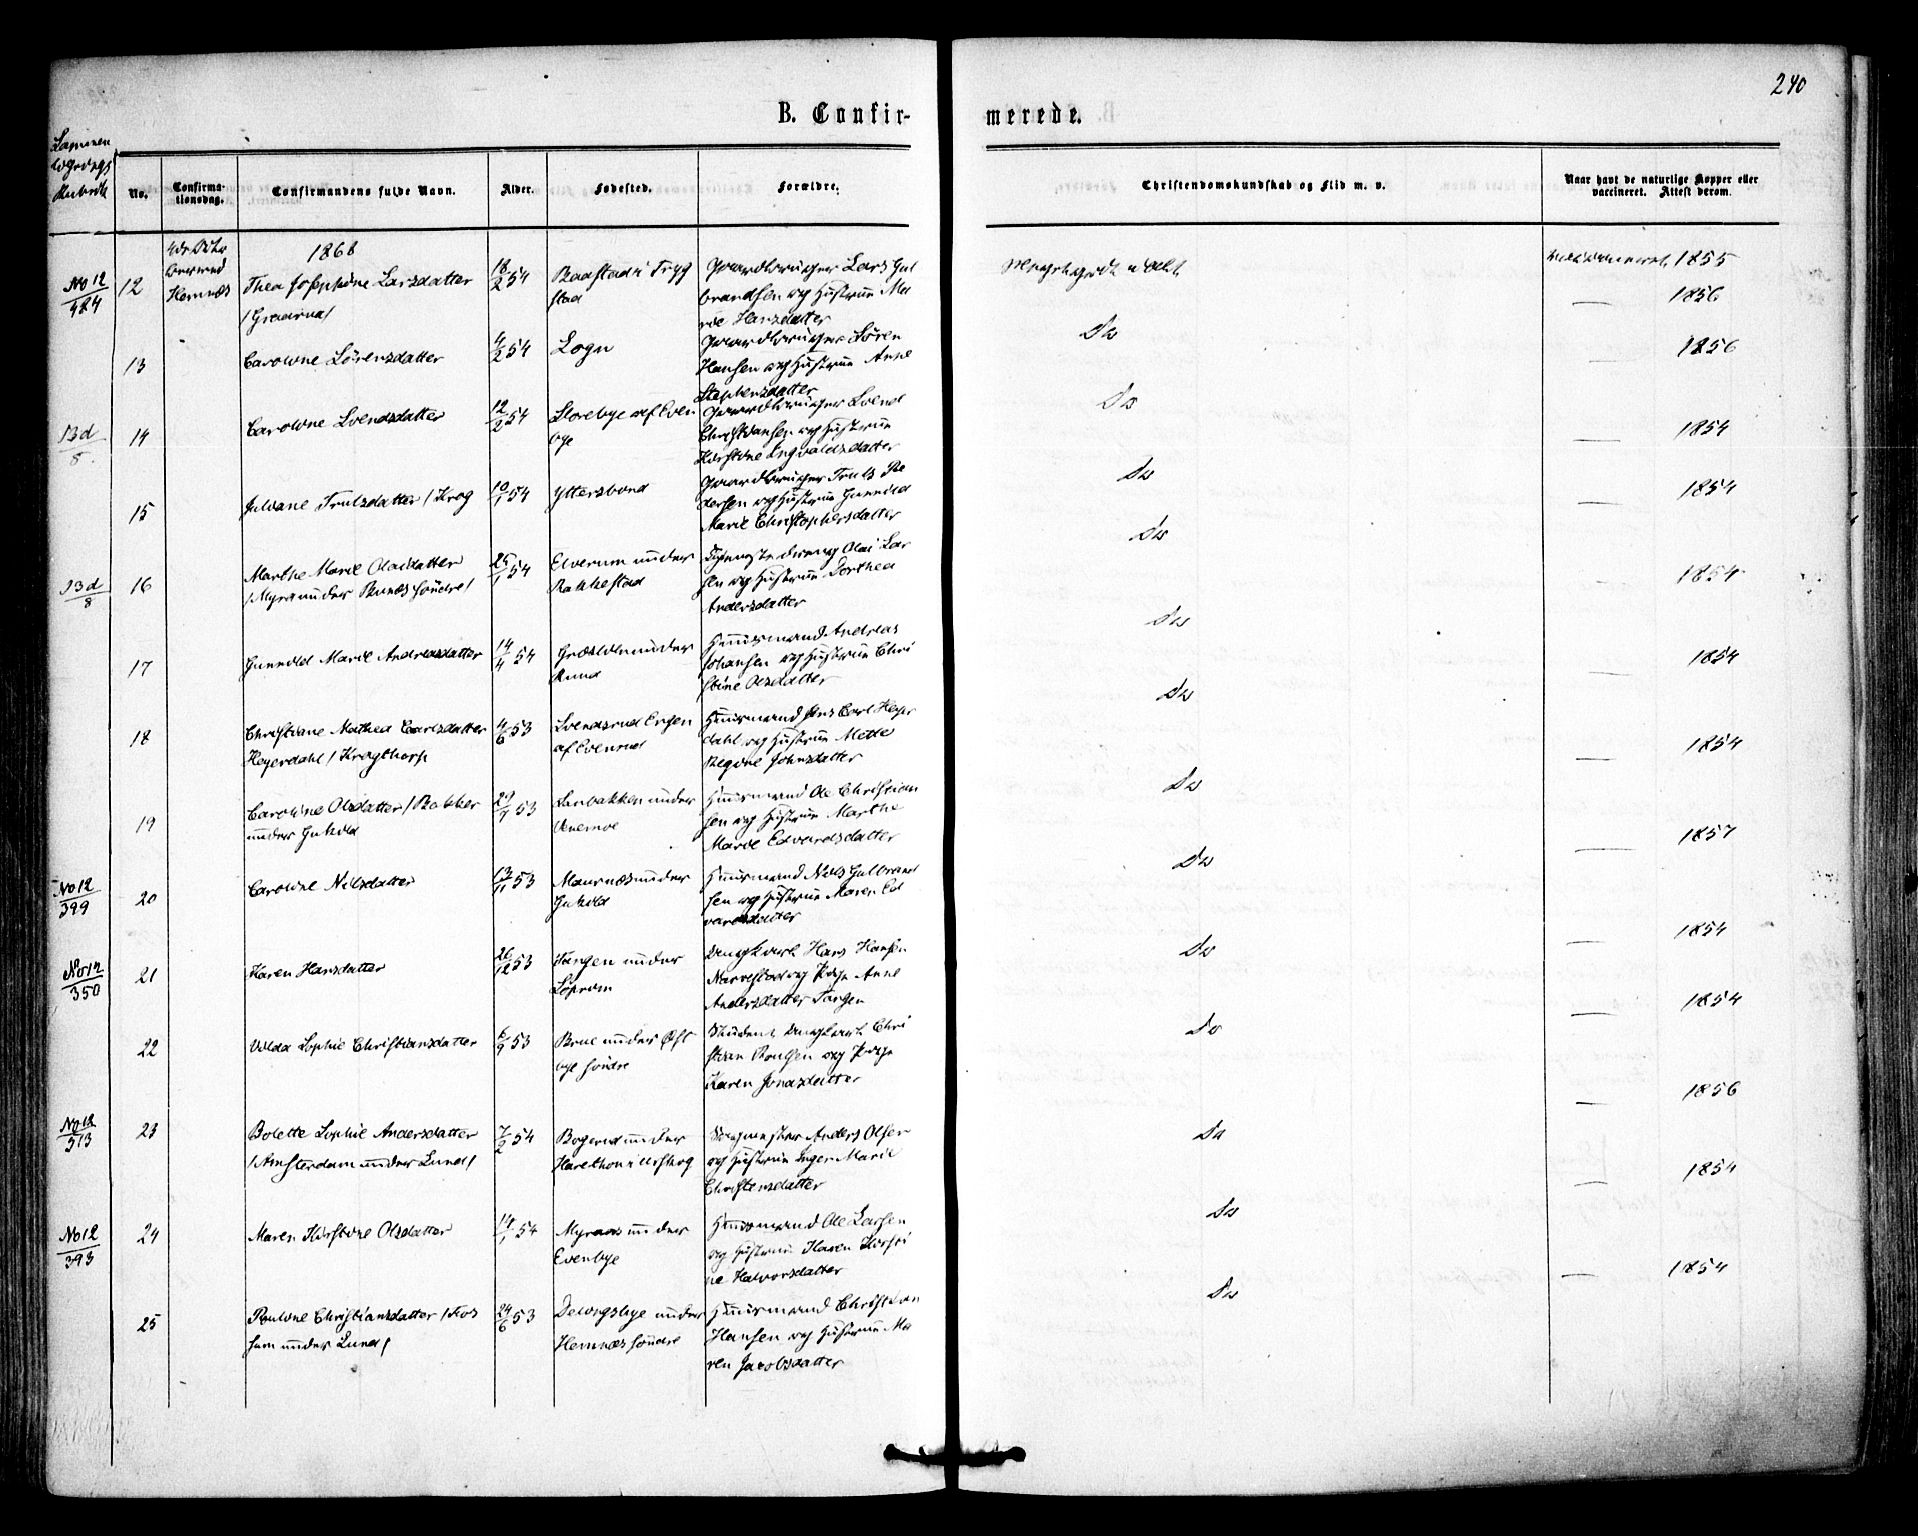 240
B. Confir-
merede.
No.
Confirma-
tionsdag.
Confirmandens fulde Navn.
Alder.
Fødested.
Forældre.
Christendomskundskab og Flid m. v.
Naar havt de naturlige Kopper eller
vaccineret. Attest derom.
Hemnæs
1868
No 12
484
12
Thea Josephine Larsdatter
18/2 54
Baastad i Tryg
stad
Gaardbruger Lars Gul
brandsen og Hustrue Ma
rie Hansdatter
Meget godt
vaccineret 1855
13
Caroline Sörensdatter
4/2 54
Logn
Gaardbruger Sören
Hansen og Hustrue Anne
Stephensdatter
Do
— 1856
14
Caroline Svendsdatter
12/2 54
Storebye af Even
bye
Gaardbruger Svend
Christiansen og Hustrue
Kirstine Ingvaldsdatter
Do
1856
13d
8.
15
Juliane Trulsdatter / Krog
10/1 54
Gaardbruger Truls Pe
dersen og Hustrue Gunnild
Marie Christophersdatter
Do
— 1854
13d
8
16
Marthe Marie Olaisdatter
25/1 54
Elverum under
Rakkestad
Tjenestedreng Olai Lar
sen og Hustrue Dorthea
Andersdatter
Do
— 1854
17
Gunnild Marie Andreasdatter
14/4 54
Huusmand Andreas
Johansen og Hustrue Chri
stine Olsdatter
Do
— 1854
18
Christiane Mathea Carlsdatter
Heyerdahl / Krogthorp
4/6 53
Svendsrud Engen
af Evenrud
Huusmand Jens Carl Heyer
dahl og Hustrue Mette
Regine Johnsdatter
Do
1854
19
Caroline Olsdatter / Bakker
under Huhild
29/7 53
Huusmand Ole Christian
sen og Hustrue Marthe
Marie Edvardsdatter
Do
— 1854
No 12
399
20
Caroline Nilsdatter
13/11 53
Huusmand Nils Gulbrand
sen og Hustrue Maren Ed
vardsdatter
Do
— 1857
No 12
350
21
Karen Hansdatter
26/12 53
Tangen under
Hans Hansen
og Pige Anne
Andersdatter Tangen
Do
— 1854
22
Vilda Sophie Christiansdatter
6/9 53
Brue under Øst
bye söndre
Student Ungkarl Chri
stian Poulsen og Pige
Karen Jonasdatter
Do
— 1854
No 12
513
23
Bolette Sophie Andersdatter
/ Amsterdam under Lund /
7/2 54
Anders Olsen
og Hustrue Inger Marie
Christensdatter
Do
— 1856
No 12
393
24
Maren Kirstine Olsdatter
14/1 54
Myraas under
Evenbye
Huusmand Ole Larsen
og Hustrue Karen Kirsti
ne Halvorsdatter
Do
— 1854
25
Pauline Christiansdatter / Fos
sum under Lund /
24/6 53
under
Hemnæs söndre
Huusmand Christian
Hansen og Hustrue Ma
ren Jacobsdatter
Do
— 1854